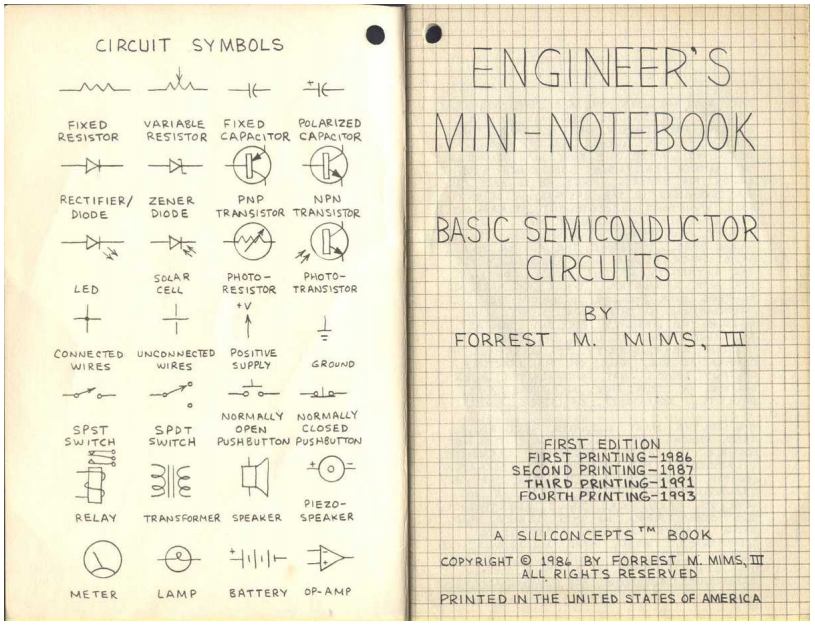 CIRCUIT SYMBOLS
FIXED RESISTOR
VARIABLE RESISTOR
FIXED CAPACITOR
+
POLARIZED CAPACITOR
RECTIFIER/ DIODE
ZENER DIODE
PNP TRANSISTOR
NPN TRANSISTOR
LED
SOLAR CELL
PHOTO- RESISTOR
PHOTO- TRANSISTOR
CONNECTED WIRES
UNCONNECTED WIRES
+V
POSITIVE SUPPLY
GROUND
SPST SWITCH
SPDT SWITCH
NORMALLY OPEN PUSHBUTTON
NORMALLY CLOSED PUSHBUTTON
RELAY
TRANSFORMER
SPEAKER
+ -
PIEZO- SPEAKER
METER
LAMP
+ -
BATTERY
- +
OP-AMP
ENGINEER'S
MINI-NOTEBOOK
BASIC SEMICONDUCTOR
CIRCUITS
BY
FORREST M. MIMS, III
FIRST EDITION
FIRST PRINTING-1986
SECOND PRINTING-1987
THIRD PRINTING-1991
FOURTH PRINTING-1993
A SILICONCEPTS™ BOOK
COPYRIGHT © 1986 BY FORREST M. MIMS, III
ALL RIGHTS RESERVED
PRINTED IN THE UNITED STATES OF AMERICA